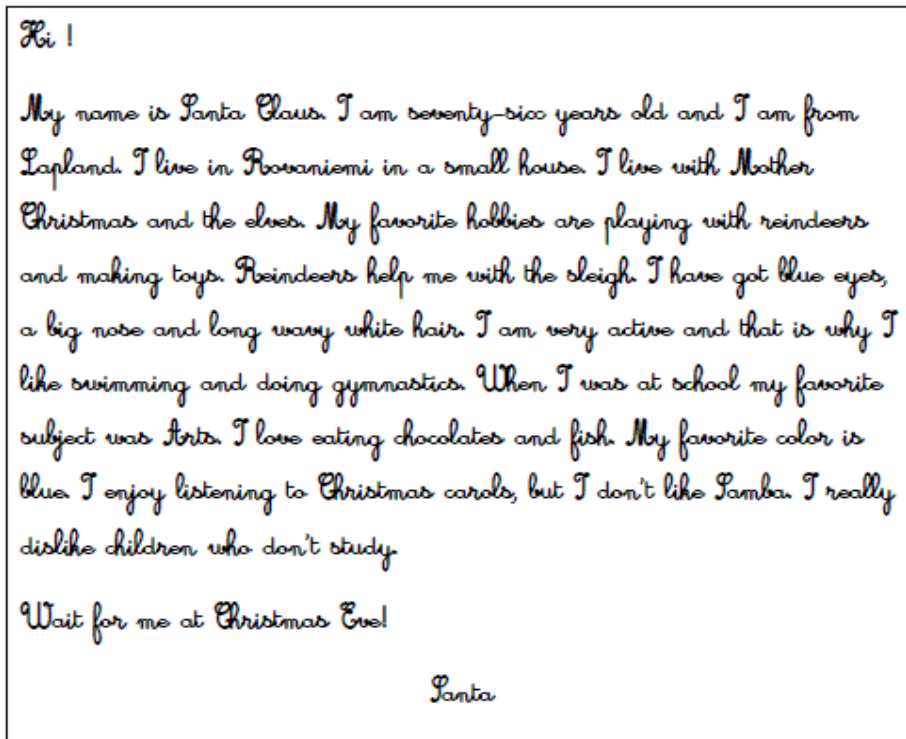 Hi !
My name is Santa Claus. I am seventy-six years old and I am from
Lapland. I live in Rovaniemi in a small house. I live with Mother
Christmas and the elves. My favorite hobbies are playing with reindeers
and making toys. Reindeers help me with the sleigh. I have got blue eyes,
a big nose and long wavy white hair. I am very active and that is why I
like swimming and doing gymnastics. When I was at school my favorite
subject was Arts. I love eating chocolates and fish. My favorite color is
blue. I enjoy listening to Christmas carols, but I don't like Samba. I really
dislike children who don't study.
Wait for me at Christmas Eve!
Santa